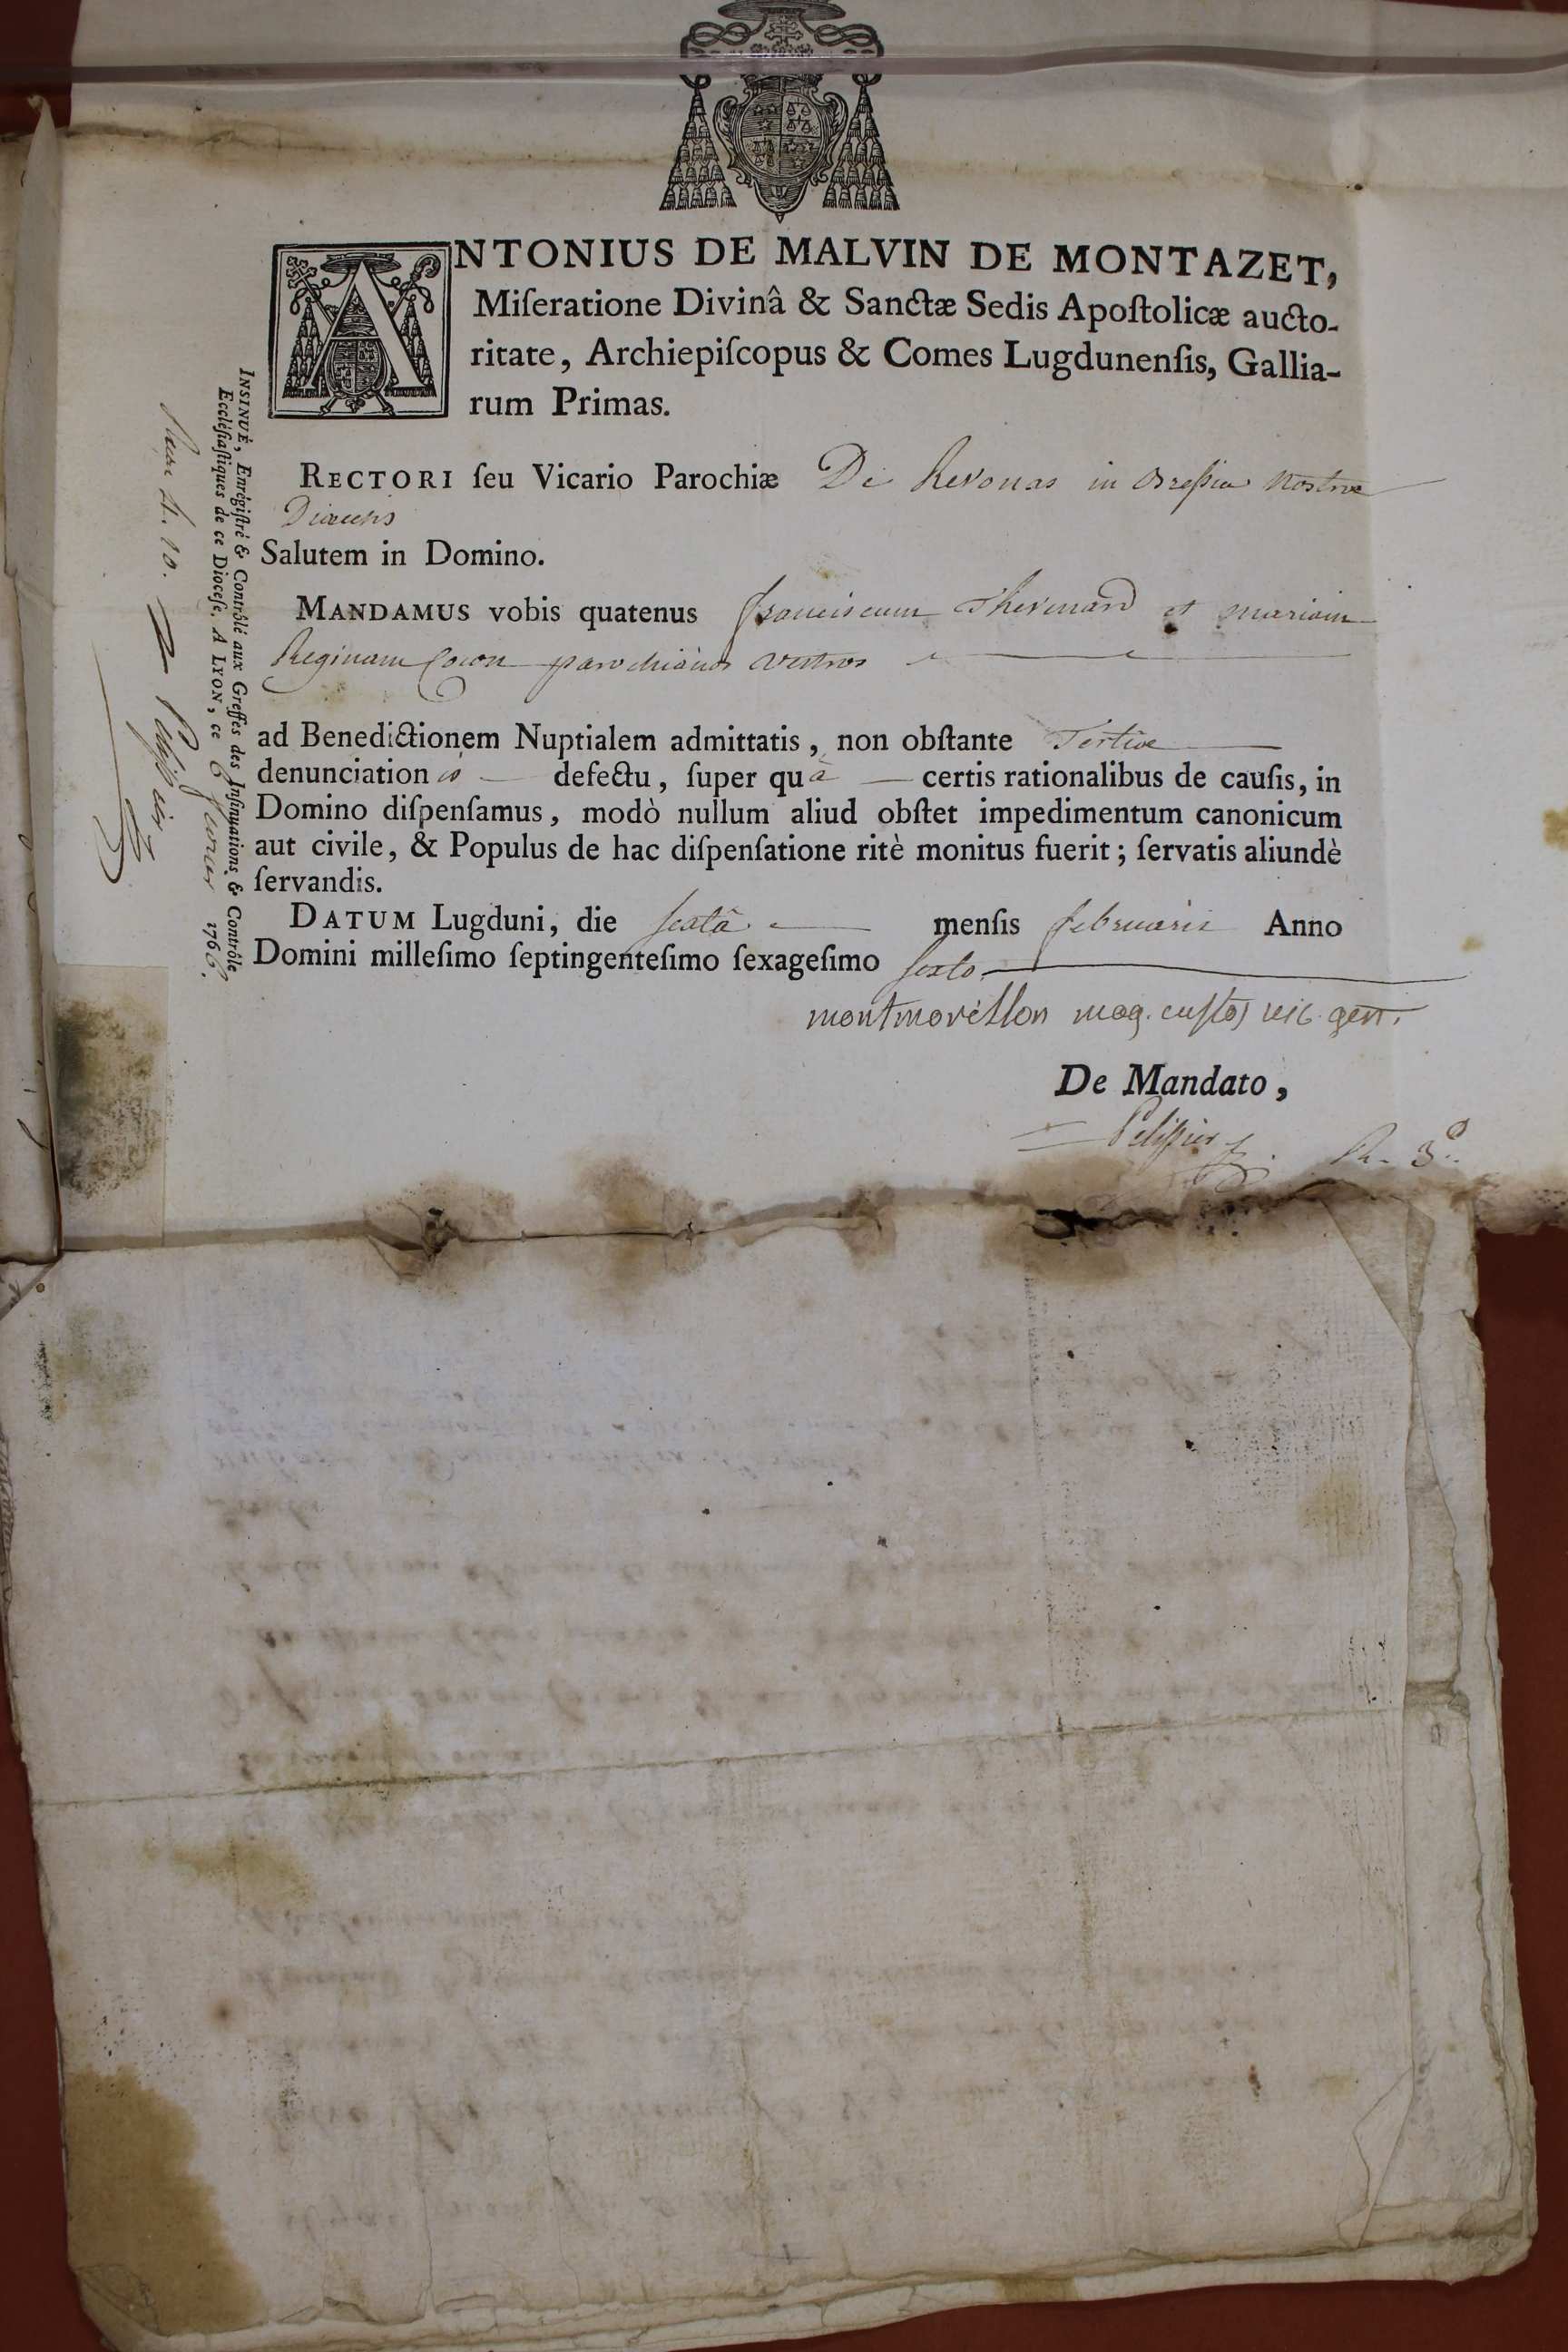 ANTONIUS DE MALVIN DE MONTAZET,
Miſeratione Divinâ & Sanctæ Sedis Apoſtolicæ aucto-
ritate, Archiepiſcopus & Comes Lugdunenſis, Gallia-
rum Primas.
RECTORI ſeu Vicario Parochiæ De Revonas in Bressia nostræ
Diœcesis
Salutem in Domino.
MANDAMUS vobis quatenus franciscum Thevenard et mariam
Reginam parochianos vestros
ad Benedictionem Nuptialem admittatis, non obſtante Tertiæ
denunciationis defectu, ſuper quâ certis rationalibus de cauſis, in
Domino diſpenſamus, modò nullum aliud obſtet impedimentum canonicum
aut civile, & Populus de hac diſpenſatione ritè monitus fuerit; ſervatis aliundè
ſervandis.
DATUM Lugduni, die sextâ menſis februarii Anno
Domini milleſimo ſeptingenteſimo ſexageſimo sexto
montmorillon mag. custos vic. gen.
De Mandato,
Pelissier
R. 3
INSINUÉ, Enrégiſtré & Contrôlé aux Greffes des Inſinuations & Contrôle
Eccléſiaſtiques de ce Dioceſe. A LYON, ce 6 fevrier 1766.
10.
Pelissier